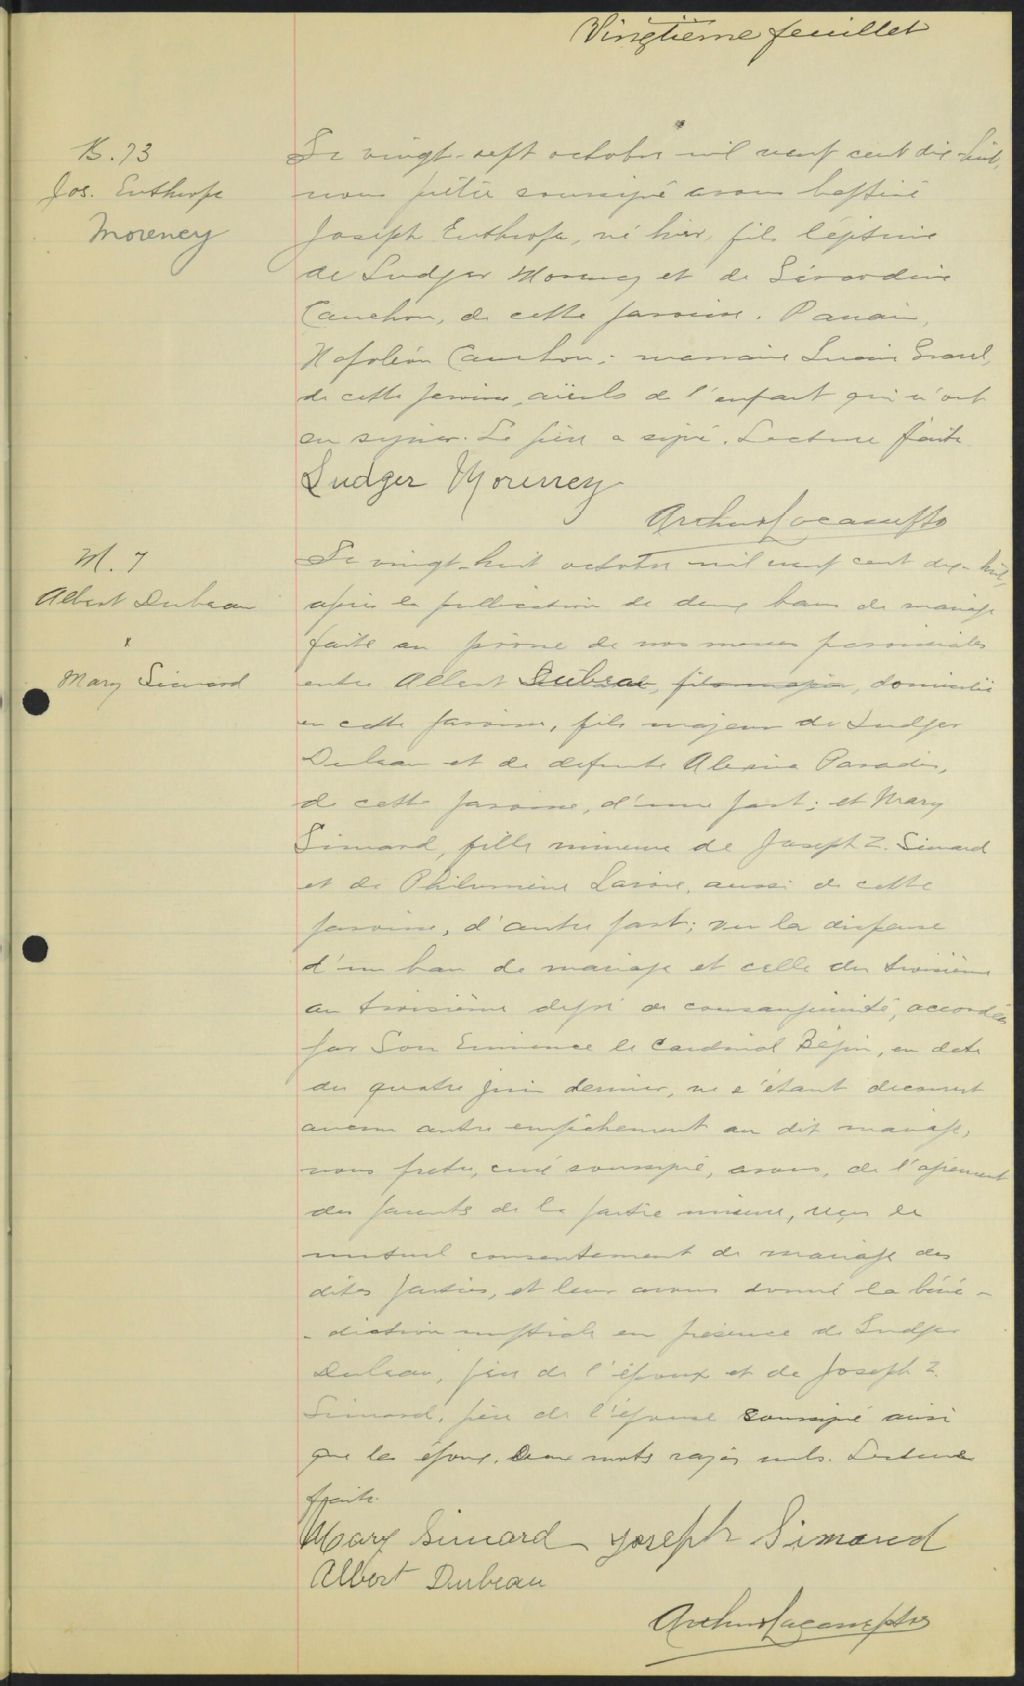 Vingtième feuillet
B. 73
Jos. Euthrope
Morency
Le vingt-sept octobre mil neuf cent dix-huit,
nous prêtre soussigné avons baptisé
Joseph Euthrope, né hier, fils légitime
de Ludger Morency et de Gérardine
Cauchon, de cette paroisse. Parrain,
Napoléon Cauchon; marraine
de cette paroisse, aïeuls de l'enfant qui n'ont
su signer. Le père a signé. Lecture faite.
Ludger Morency
Arthur Lacasse Ptre
M. 7
Albert Dubeau
x
Mary Simard
Le vingt-huit octobre mil neuf cent dix-huit,
après la publication de deux bans de mariage
faite au prône de nos messes paroissiales
entre Albert Dubeau, fils majeur, domicilié
en cette paroisse, fils majeur de Ludger
Dubeau et de defunte Alexina Paradis,
de cette paroisse, d'une part; et Mary
Simard, fille mineure de Joseph Z. Simard
et de Philomène Lavoie, aussi de cette
paroisse, d'autre part; vu la dispense
d'un ban de mariage et celle du troisième
au troisième degré de consanguinité, accordées
par Son Eminence le Cardinal Bégin, en date
du quatre juin dernier, ne s'étant découvert
aucun autre empêchement au dit mariage,
nous prêtre, curé soussigné, avons, de l'agrément
des parents de la partie mineure, reçu le
mutuel consentement de mariage des
dites parties, et leur avons donné la béné-
-diction nuptiale en présence de Ludger
Dubeau, père de l'époux et de Joseph Z.
Simard, père de l'épouse soussigné ainsi
que les époux. Deux mots rayés nuls. Lecture
faite.
Mary Simard Joseph Simard
Albert Dubeau